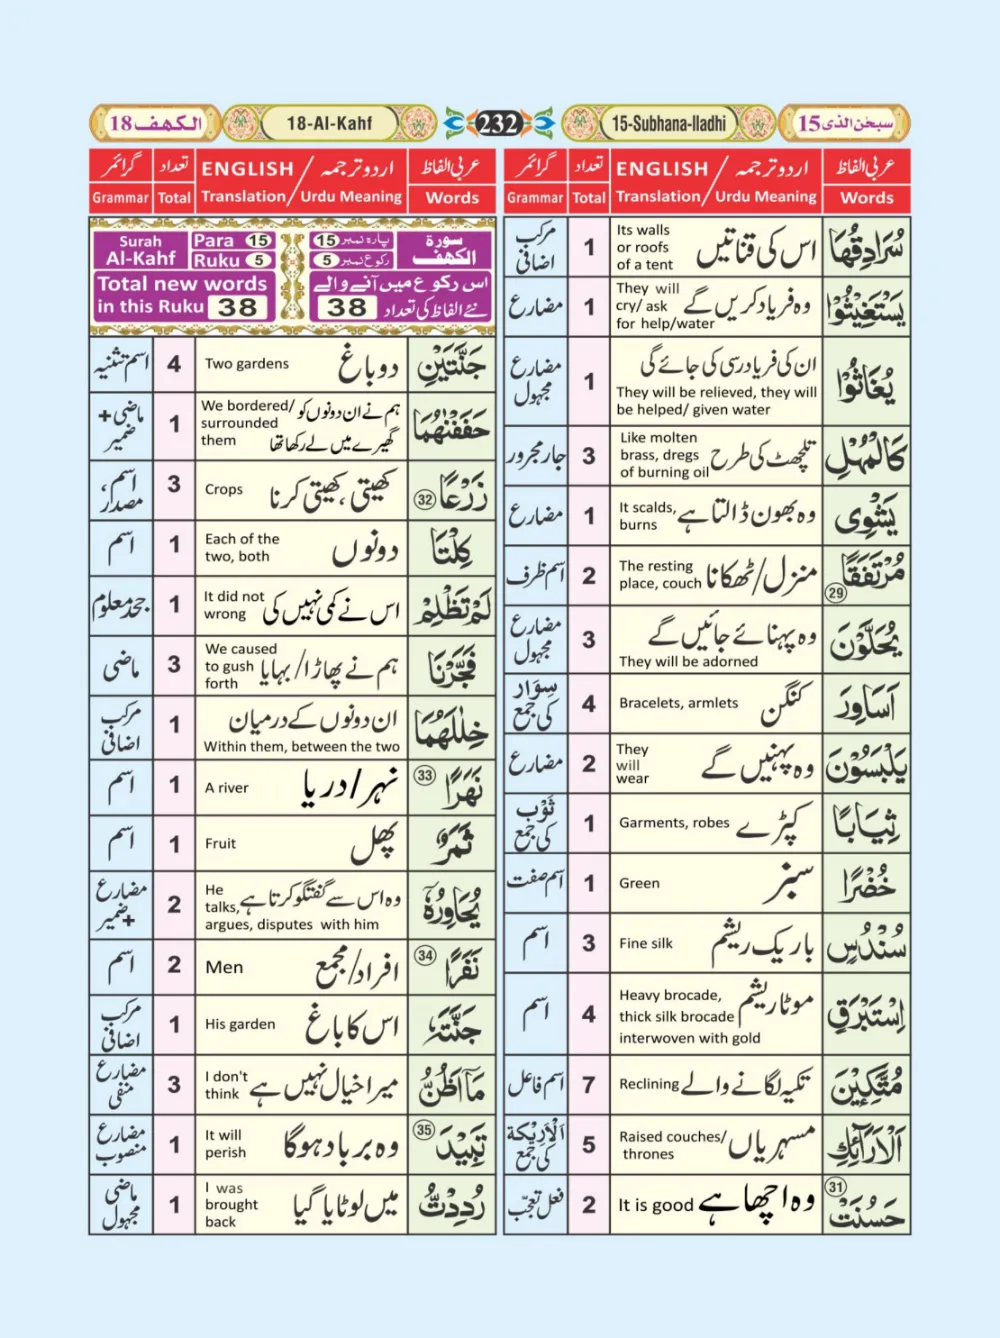 الكهف 18
18-Al-Kahf
232
15-Subhana-lladhi
سبحٰن الذى 15
عربی الفاظ اردو ترجمہ / ENGLISH تعداد گرائمر
Words Urdu Meaning / Translation Total Grammar
سُرَادِقُهَا اس کی قناتیں Its walls 1 مرکب
or roofs اضافی
of a tent
يَسْتَغِيْثُوْا وہ فریاد کریں گے They will 1 مضارع
cry/ ask
for help/water
يُغَاثُوْا ان کی فریاد رسی کی جائے گی 1 مضارع
They will be relieved, they will مجہول
be helped/ given water
كَالْمُهْلِ تلچھٹ کی طرح Like molten 3 جار مجرور
brass, dregs
of burning oil
يَشْوِى وہ بھون ڈالتا ہے It scalds, 1 مضارع
burns
مُرْتَفَقًا 29 منزل/ٹھکانا The resting 2 اسم ظرف
place, couch
يُحَلَّوْنَ وہ پہنائے جائیں گے 3 مضارع
They will be adorned مجہول
اَسَاوِرَ کنگن Bracelets, armlets 4 سِوَار
کی جمع
يَلْبَسُوْنَ وہ پہنیں گے They 2 مضارع
will
wear
ثِيَابًا کپڑے Garments, robes 1 ثَوْب
کی جمع
خُضْرًا سبز Green 1 اسم صفت
سُنْدُسٍ باریک ریشم Fine silk 3 اسم
اِسْتَبْرَقٍ موٹا ریشم Heavy brocade, 4 اسم
thick silk brocade
interwoven with gold
مُتَّكِـِٕيْنَ تکیہ لگانے والے Reclining 7 اسم فاعل
اَلْاَرَآئِكِ مسہریاں Raised couches/ 5 اَلْاَرِيْكَة
thrones کی جمع
حَسُنَتْ 31 وہ اچھا ہے It is good 2 فعل تعجب
عربی الفاظ اردو ترجمہ / ENGLISH تعداد گرائمر
Words Urdu Meaning / Translation Total Grammar
Surah Para 15 پارہ نمبر 15 سورة
Al-Kahf Ruku 5 رکوع نمبر 5 الكهف
Total new words اس رکوع میں آنے والے
in this Ruku 38 نئے الفاظ کی تعداد 38
جَنَّتَيْنِ دو باغ Two gardens 4 اسم تثنیہ
حَفَفْنٰهُمَا ہم نے ان دونوں کو We bordered/ 1 ماضی +
گھیرے میں لے رکھا تھا surrounded ضمیر
them
زَرْعًا 32 کھیتی، کھیتی کرنا Crops 3 اسم،
مصدار
كِلْتَا دونوں Each of the 1 اسم
two, both
لَمْ تَظْلِمْ اس نے کمی نہیں کی It did not 1 جحد معلوم
wrong
فَجَّرْنَا ہم نے پھاڑا/بہایا We caused 3 ماضی
to gush
forth
خِلٰلَهُمَا ان دونوں کے درمیان 1 مرکب
Within them, between the two اضافی
نَهَرًا 33 نہر/دریا A river 1 اسم
ثَمَرٌ پھل Fruit 1 اسم
يُحَاوِرُهٗٓ وہ اس سے گفتگو کرتا ہے He 2 مضارع
talks, +ضمیر
argues, disputes with him
نَفَرًا 34 افراد/مجمع Men 2 اسم
جَنَّتَهٗ اس کا باغ His garden 1 مرکب
اضافی
مَآ اَظُنُّ میرا خیال نہیں ہے I don't 3 مضارع
think منفی
تَبِيْدَ 35 وہ برباد ہوگا It will 1 مضارع
perish منصوب
رُدِدْتُّ میں لوٹایا گیا I was 1 ماضی
brought مجہول
back